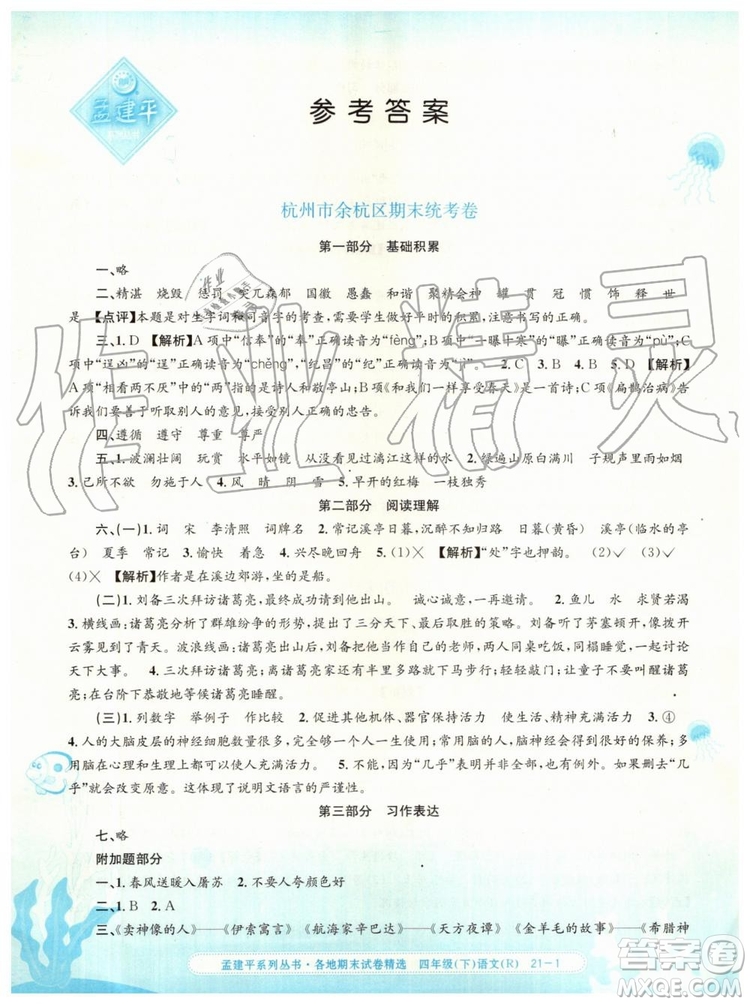 孟建平
参考答案
杭州市余杭区期末统考卷
第一部分　基础积累
一、略
二、精湛　烧毁　惩罚　突兀森郁　国徽　愚蠢　和谐　聚精会神　罐　贯　冠　惯　饰　释　世
是　【点评】本题是对生字词和同音字的考查,需要学生做好平时的积累,注意书写的正确。
三、1. D　【解析】A项中“信奉”的“奉”正确读音为“fèng”;B项中“一曝十寒”的“曝”正确读音为“pù”;C
项中“逞凶”的“逞”正确读音为“chěng”,“纪昌”的“纪”正确读音为“jǐ”。　2. C　3. B　4. B　5. D　【解析】
A项“相看两不厌”中“厌”是指诗人与敬亭山;B项《和我们一样享受春天》是一首诗;C项《扁鹊治病》告
诉我们要善于听取别人的意见,接受别人正确的忠告。
四、遵循　遵守　尊重　尊严
五、1.波澜壮阔　玩赏　水平如镜　从没看见过漓江这样的水　2.绿遍山原白满川　子规声里雨如烟
3.己所不欲　勿施于人　4.风　晴　阴　雪　5.早开的红梅　一枝独秀
第二部分　阅读理解
六、(一)1.词　宋　李清照　词牌名　2.常记溪亭日暮,沉醉不知归路　日暮(黄昏)　溪亭(临水的亭
台)　夏季　常记　3.愉快　着急　4.兴尽晚回舟　5.(1)×　【解析】“处”字也押韵。　(2)√　(3)√
(4)×　【解析】作者是在溪边郊游,并坐的是船。
(二)1.刘备三次拜访诸葛亮,最终成功地请他出山。　诚心诚意,一再邀请。　2.鱼儿　水　求贤若渴
3.横线画:诸葛亮分析了群雄纷争的形势,提出了三分天下、最后取胜的策略。刘备听了茅塞顿开,像拨开
云雾见到了青天。波浪线画:诸葛亮出山后,刘备把他当作自己的老师,两人同桌吃饭,同榻睡觉,一起分析
天下大事。　4.三次拜访诸葛亮;离诸葛亮的住处还有半里多路就下马步行;轻轻敲门;让童子不要叫醒诸葛
亮;在台阶下恭敬地等候诸葛亮睡醒。
(三)1.列数字　举例子　作比较　2.充实有活力　其他机体、器官保持活力　使生活、精神充满活力　3.④
4.人的大脑皮层的神经细胞数量约有140亿个,常用的脑神经细胞只有10多亿,还有80%~90%没动用。多
用脑在心理和生理上可以使人充满活力。　5.不能,“几乎”表明还有少部分人的生命是离不开水的。如果删去“几
乎”就会改变原意。这体现了说明文语言的严谨性。
第三部分　习作表达
七、略
附加题部分
一、1.春风送暖入屠苏　2.不要人夸颜色好
二、1. B　2. A
三、《卖神像的人》—《伊索寓言》　《航海家辛巴达》—《天方夜谭》　《金羊毛的故事》—《希腊神
孟建平系列丛书·各地期末试卷精选　四年级(下)语文(R)　21-1
作业精灵
答案圈
MXQE.COM